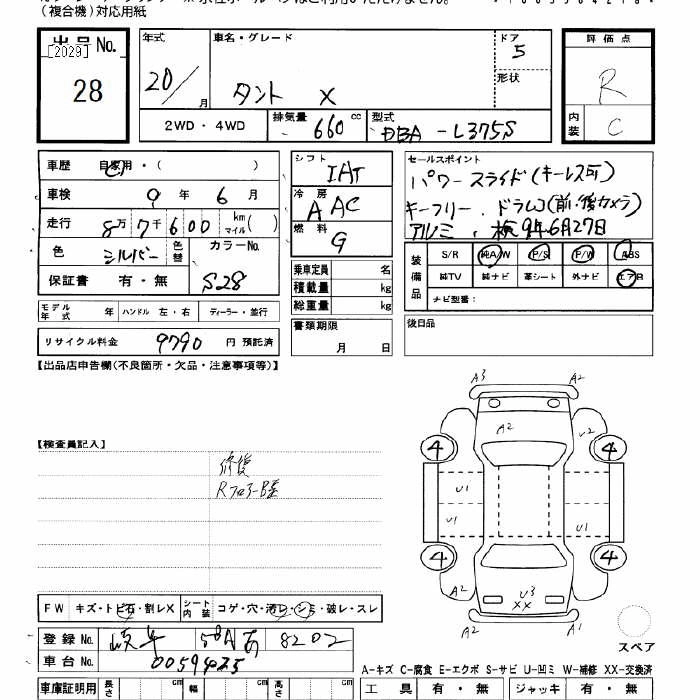 (複合機)対応用紙
出品 No.
[2029]
28
年式
20/
月
車名・グレード
タント X
ドア
5
形状
評価点
R
内装
C
2WD・4WD
排気量
660
cc
型式
DBA-L375S
車歴
自家用・( )
車検
9 年 6 月
走行
8万7千600
km
マイル( )
色
シルバー
色替
カラーNo.
S28
保証書 有・無
シフト
IAT
冷房
A AC
燃料
G
乗車定員 名
積載量 kg
総重量 kg
セールスポイント
パワースライド(キーレス可)
キーフリー . ドラレコ(前・後カメラ)
アルミ . 検9年6月27日
装備品
S/R 純A/W P/S P/W ABS
純TV 純ナビ 革シート 外ナビ エアB
ナビ型番:
モデル年式 年 ハンドル 左・右 ディーラー・並行
リサイクル料金 9790 円 預託済
書類期限
月 日
後日品
【出品店申告欄(不良箇所・欠品・注意事項等)】
【検査員記入】
修復
A3 A2
A2 U2
4 4
U1
U1 U1
4 4
A2 U3 A2
XX
A2 A1
スペア
FW キズ・トビ石・割レX シート内装 コゲ・穴・汚レ・シミ・破レ・スレ
登録 No. 岐阜 581 あ 8202
車台 No. 0059425
A-キズ C-腐食 E-エクボ S-サビ U-凹ミ W-補修 XX-交換済
車庫証明用 長さ cm 幅 cm 高さ cm
工具 有・無 ジャッキ 有・無